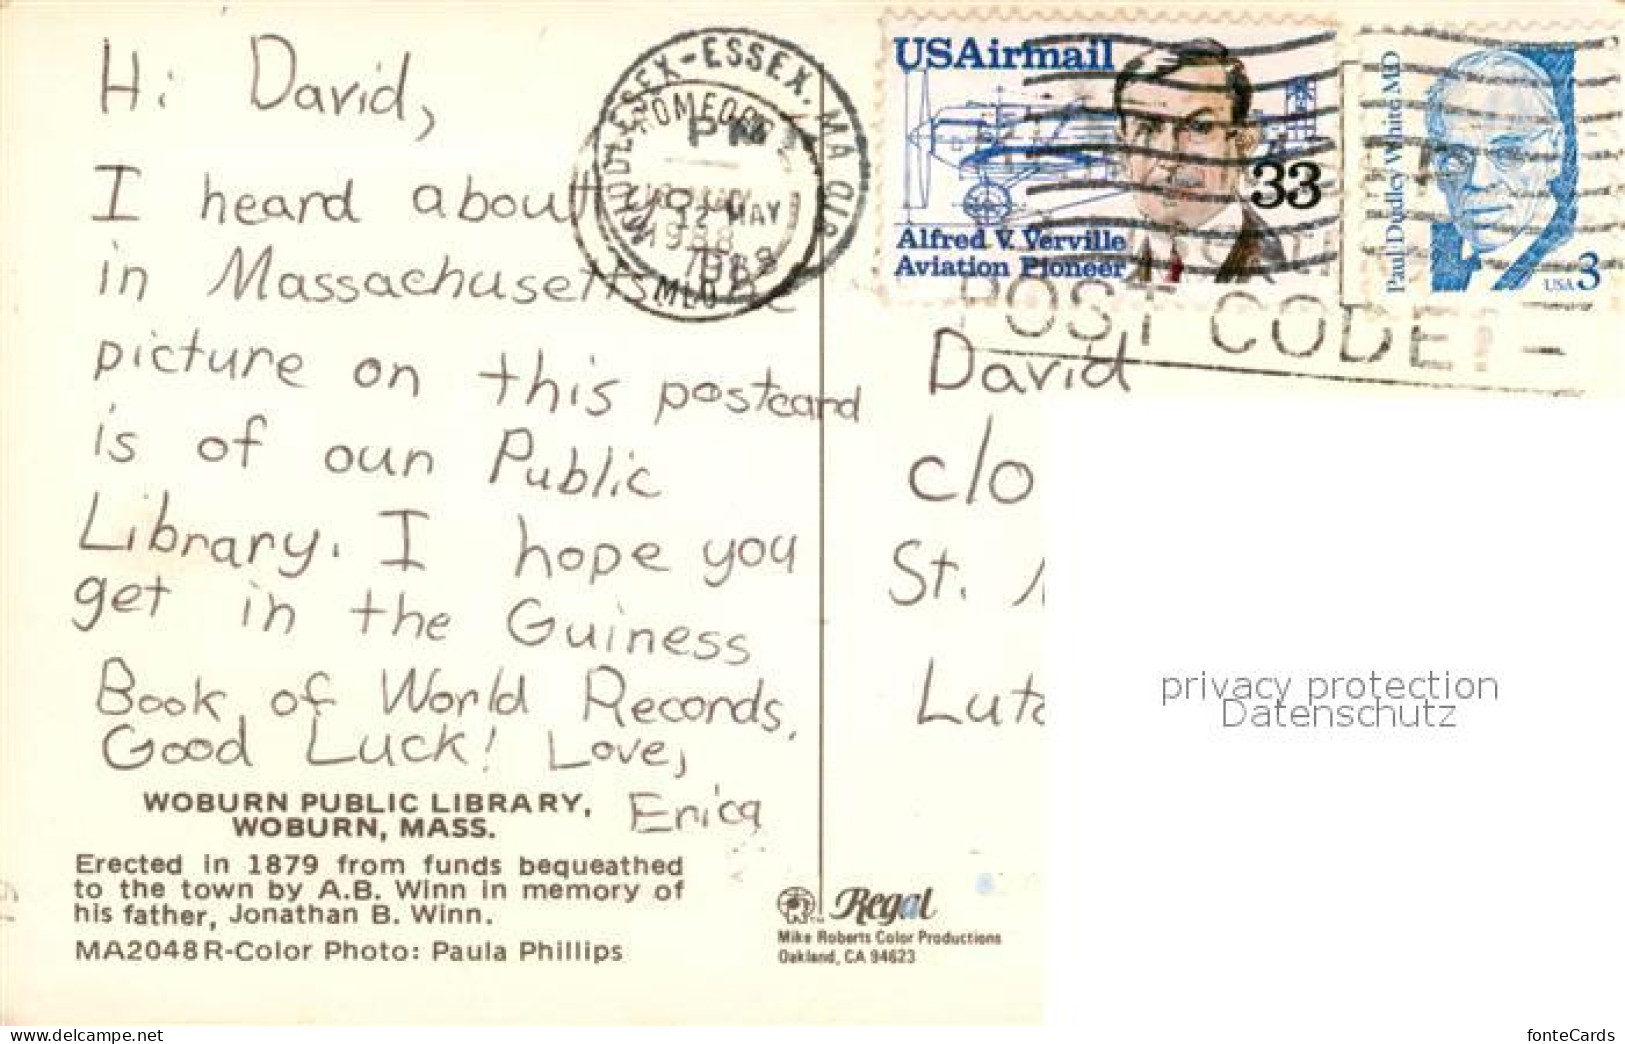 Hi David,
I heard about
in Massachusetts
picture on this postcard
is of our Public
Library. I hope you
get in the Guiness
Book of World Records.
Good Luck! Love,
Erica
WOBURN PUBLIC LIBRARY,
WOBURN, MASS.
Erected in 1879 from funds bequeathed
to the town by A.B. Winn in memory of
his father, Jonathan B. Winn.
MA2048 R-Color Photo: Paula Phillips
MIDDLESEX-ESSEX, MA
PM
12 MAY
1988
USAirmail
33
Alfred V. Verville
Aviation Pioneer
Paul Dudley White MD
USA 3
POST CODE! -
David
c/o
St.
Regal
Mike Roberts Color Productions
Oakland, CA 94623
privacy protection
Datenschutz
www.delcampe.net
fonteCards